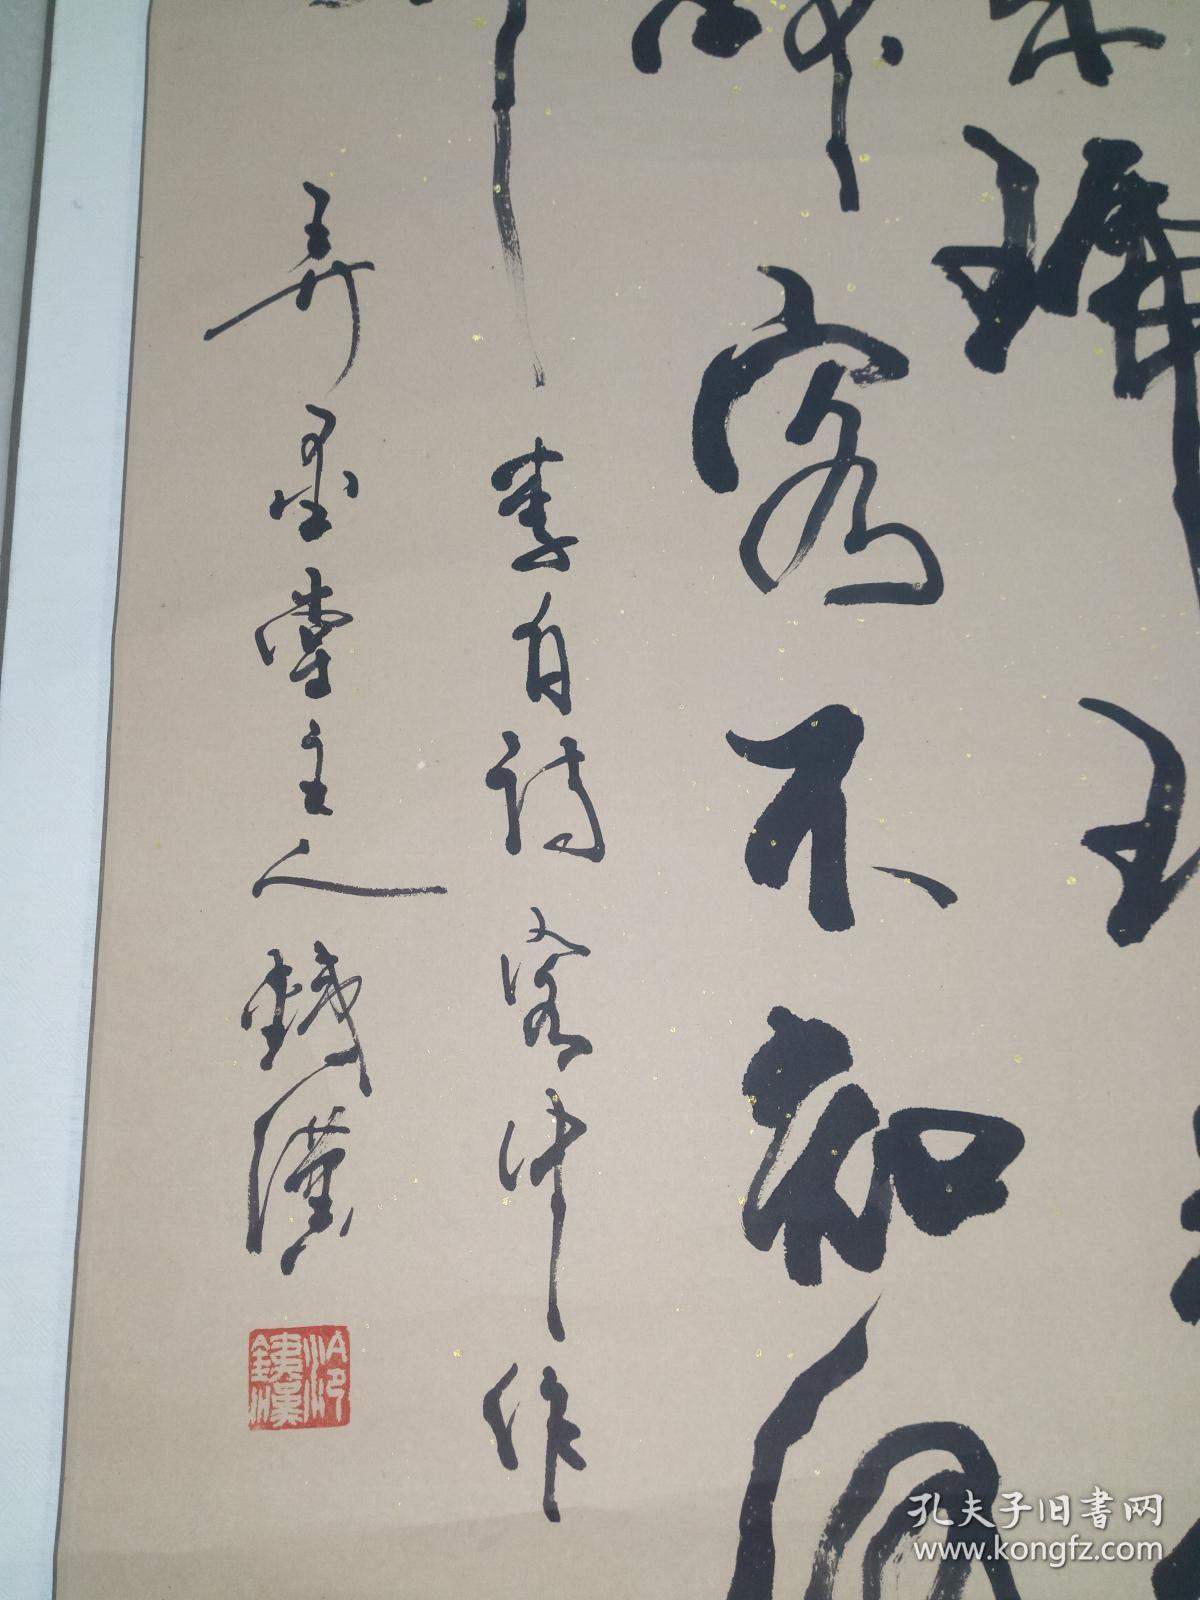 琥
醉客不知何
李白詩客中作
弄墨堂主人鐵漢
孔夫子旧书网
www.kongfz.com